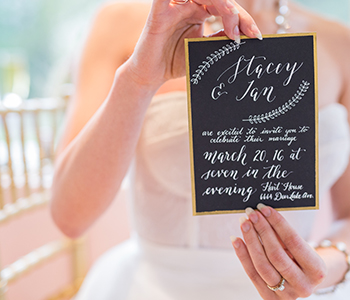 Stacey
& Ian
are excited to invite you to
celebrate their marriage
march 20, 16 at
seven in the
evening Hart House
6664 Deer Lake Ave